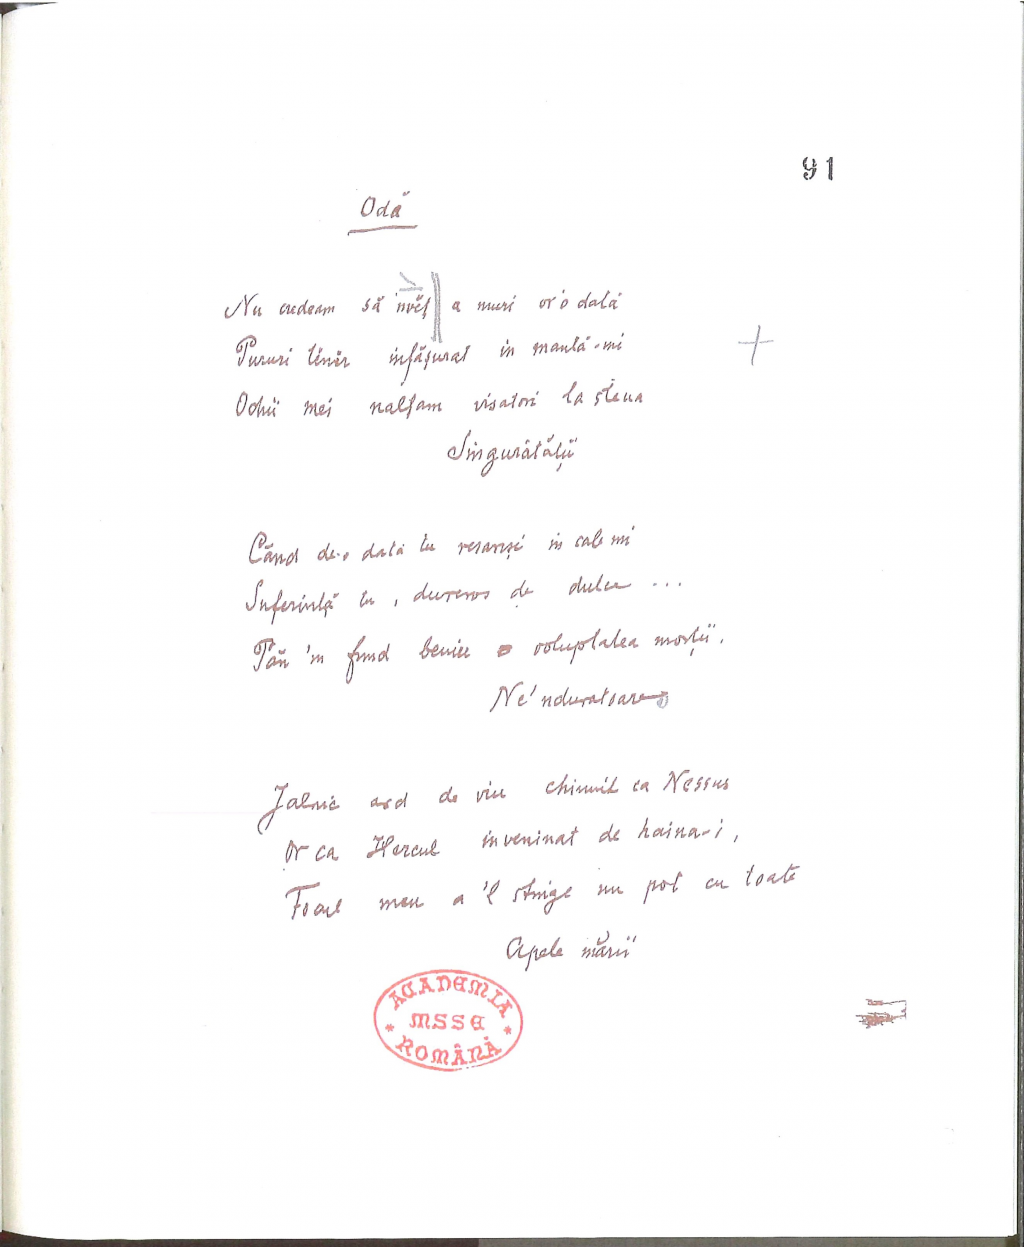 91
Odă
Nu credeam să 'nvăț a muri vr'o dată
Pururi tînĕr înfășurat in manta-mi
Ochii mei nălțam visatori la steua
Singurătății
Când de-o dată tu resăriși in cale mi
Suferință tu, dureros de dulce ...
Păn 'in fund beuiu voluptatea morții.
Ne'nduratoare
Jalnic ard de viu chinuit ca Nessus
Or ca Hercul inveninat de haina-i,
Focul meu a 'l stinge nu pot cu toate
Apele mării
ACADEMIA
MSSE
ROMÂNĂ